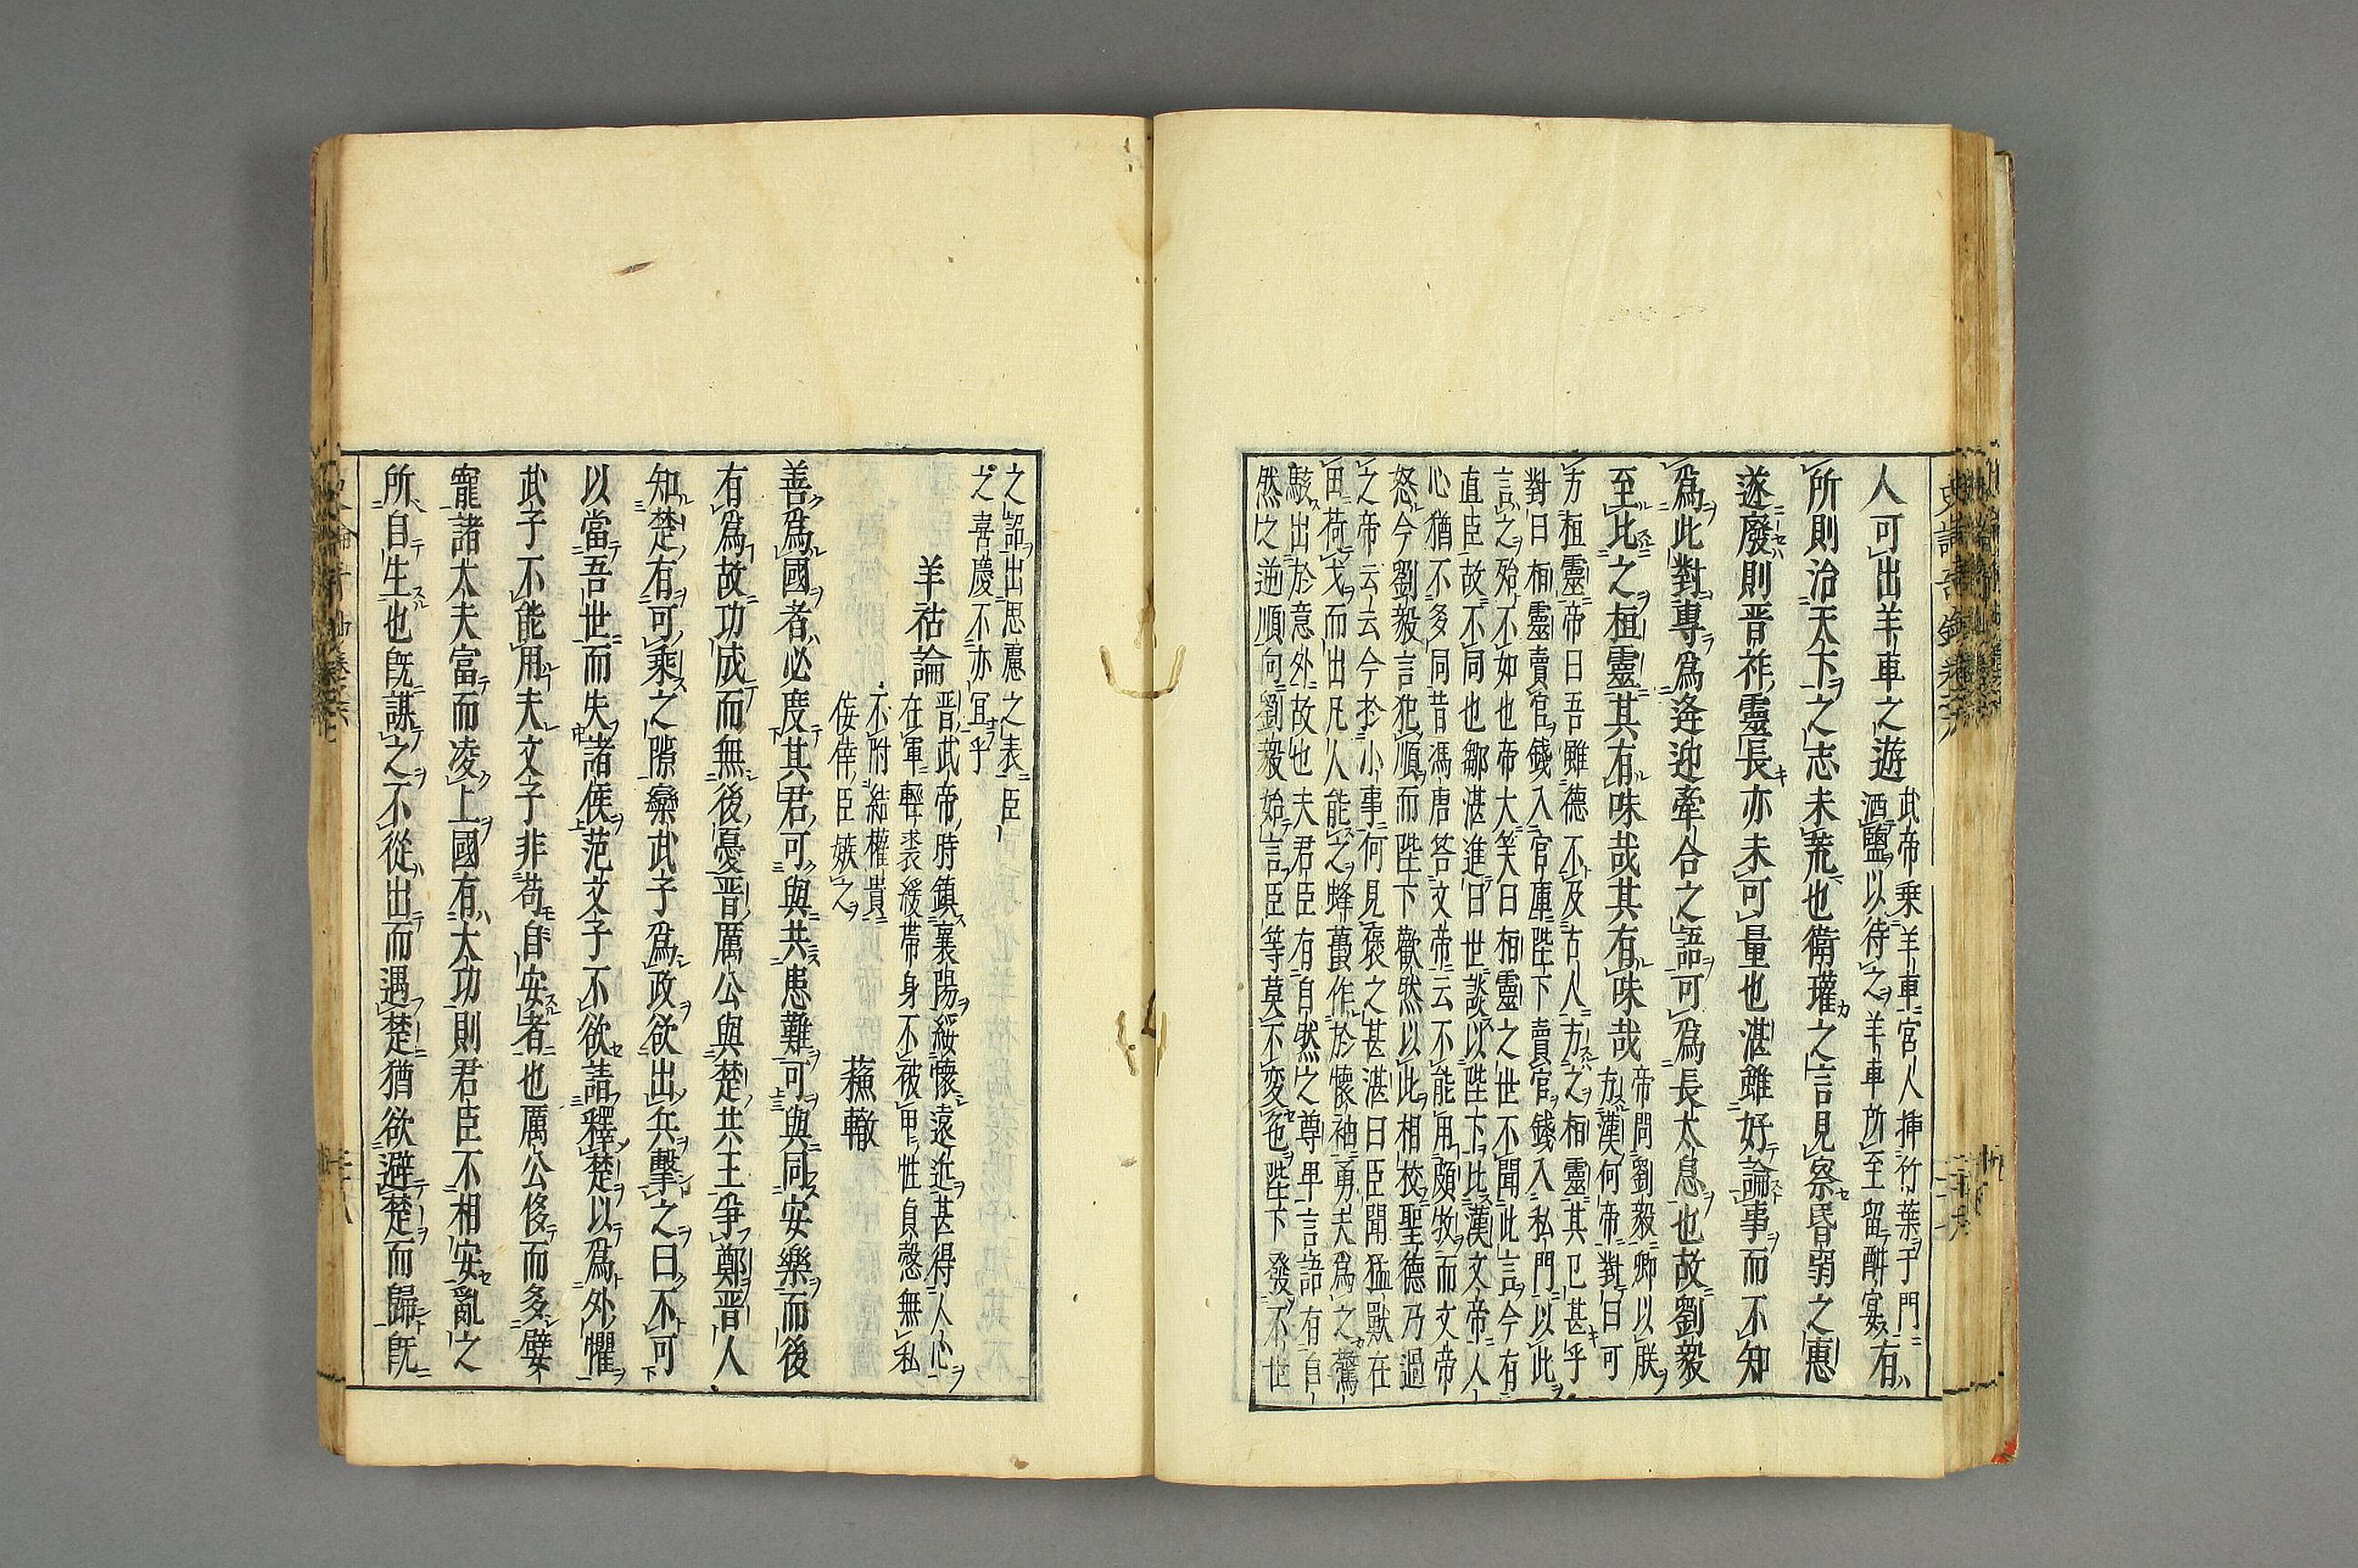 人可出羊車之遊
武帝乗羊車宮人挿竹葉于門
酒鹽以待之羊車所至留酣宴
有
所則治天下之志未荒也衛瓘之言見察昏弱之惠
遂廢則晋祚靈長亦未可量也湛雖好論事而不知
爲此對專爲逢迎牽合之語可爲長太息也故劉毅
至比之桓靈其有味哉其有味哉
帝問劉毅卿以朕
方漢何帝對曰可
方桓靈帝曰吾雖德不及古人方之桓靈其已甚乎
對曰桓靈賣官錢入官庫陛下賣官錢入私門以此
言之殆不如也帝大笑曰桓靈之世不聞此言今有
直臣故不同也鄒湛進曰世談以陛下比漢文帝人
心猶不多同昔馮唐答文帝云不能用頗牧而文帝
怒今劉毅言犯順而陛下歡然以此相校聖德乃過
之帝云云今於小事何見褒之甚湛曰臣聞猛獸在
田荷戈而出凡人能之蜂蠆作於懷袖勇夫爲之驚
駭出於意外故也夫君臣有自然之尊卑言語有自
然之逆順向劉毅始言臣等莫不変色陛下發不世
之詔出思慮之表臣
之喜慶不亦宜乎
羊祜論
晋武帝時鎮襄陽綏懷遠近甚得人心
在軍輕裘緩帯身不被甲性貞慤無私
不附結權貴
侫倖臣嫉之
蘓轍
善爲國者必度其君可與共患難可與同安樂而後
有爲故功成而無後憂晋厲公與楚共王爭鄭晋人
知楚有可乘之隙欒武子爲政欲出兵擊之曰不可
以當吾世而失諸侯范文子不欲請釋楚以爲外懼
武子不能用夫文子非苟自安者也厲公侈而多嬖
寵諸大夫富而凌上國有大功則君臣不相安亂之
所自生也旣謀之不從出而遇楚猶欲避楚而歸旣